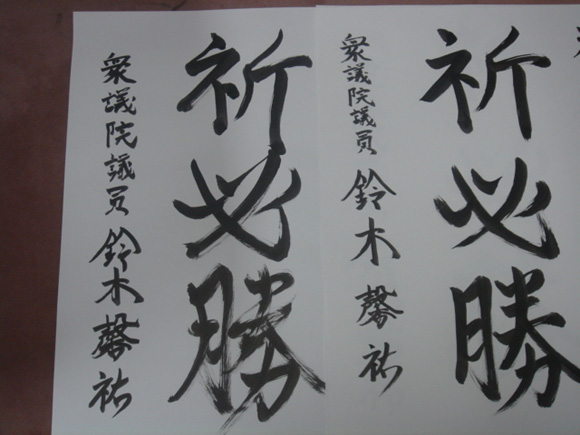 祈必勝
衆議院議員 鈴木 馨祐
祈必勝
衆議院議員 鈴木馨祐